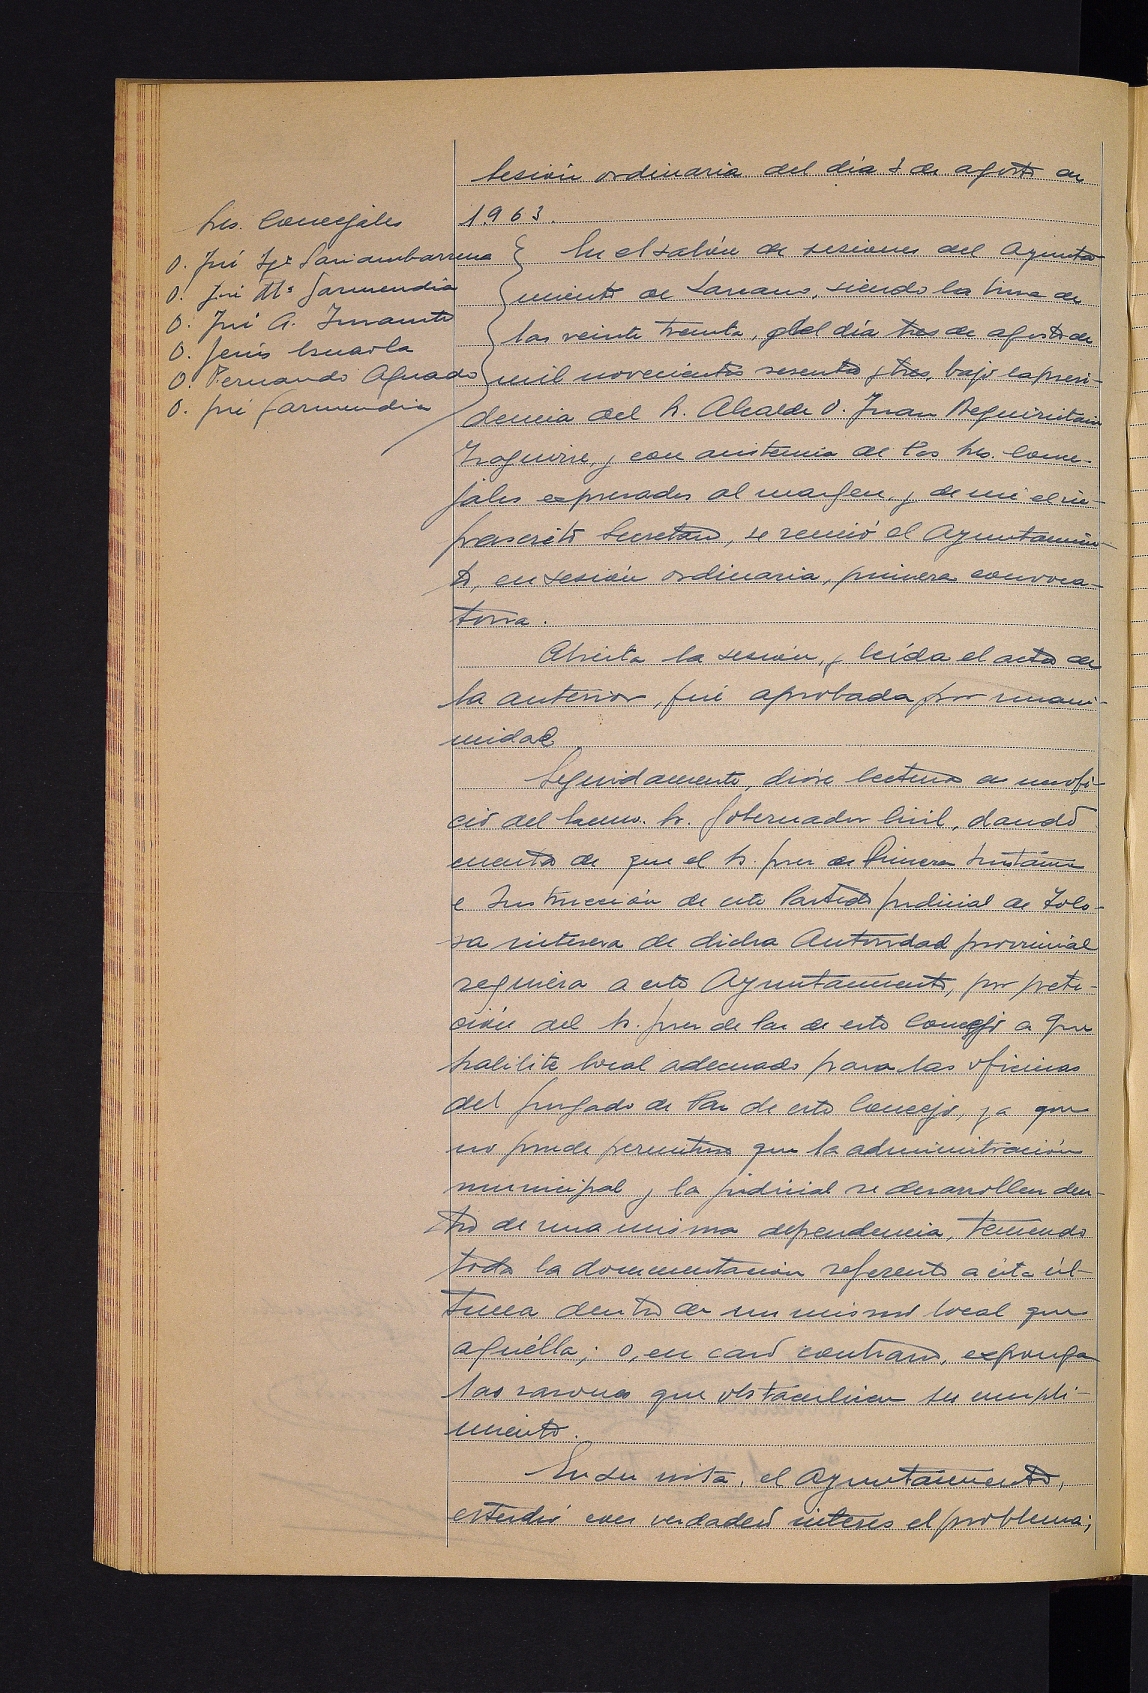 Sesión ordinaria del día 3 de agosto de
1963.
Sres. Concejales
D. José Igº Sariambarrena
D. José Mª Garmendia
D. José A.
D. Jesús
D. Fernando Aguado
D. José Garmendia
En el salón de sesiones del Ayunta
miento de Larraul, siendo la hora de
las veinte treinta, del día tres de agosto de
mil novecientos sesenta y tres, bajo la presi-
dencia del Sr. Alcalde D. Juan Beguiristain
Izaguirre, y con asistencia de los Sres. Conce-
jales expresados al margen, y de mi el in-
frascrito Secretario, se reunió el Ayuntamien-
to, en sesión ordinaria, primera convoca-
toria.
Abierta la sesión, y leída el acta de
la anterior, fué aprobada por unani-
midad
Seguidamente, dióse lectura a un ofi-
cio del Excmo. Sr. Gobernador Civil, dando
cuenta de que el Sr. Juez de Primera Instancia
e Instrucción de este Partido Judicial de Tolo-
sa interesa de dicha Autoridad provincial
requiera a este Ayuntamiento, por peti-
ción del Sr. Juez de Paz de este Concejo a que
habilite local adecuado para las oficinas
del Juzgado de Paz de este Concejo, ya que
no puede permitirse que la administración
municipal y la judicial se desarrollen den-
tro de una misma dependencia, teniendo
toda la documentación referente a ésta úl-
tima dentro de un mismo local que
aquélla; o, en caso contrario, exponga
las razones que obstaculicen su cumpli-
miento.
En su vista, el Ayuntamiento,
estudió con verdadero interés el problema;